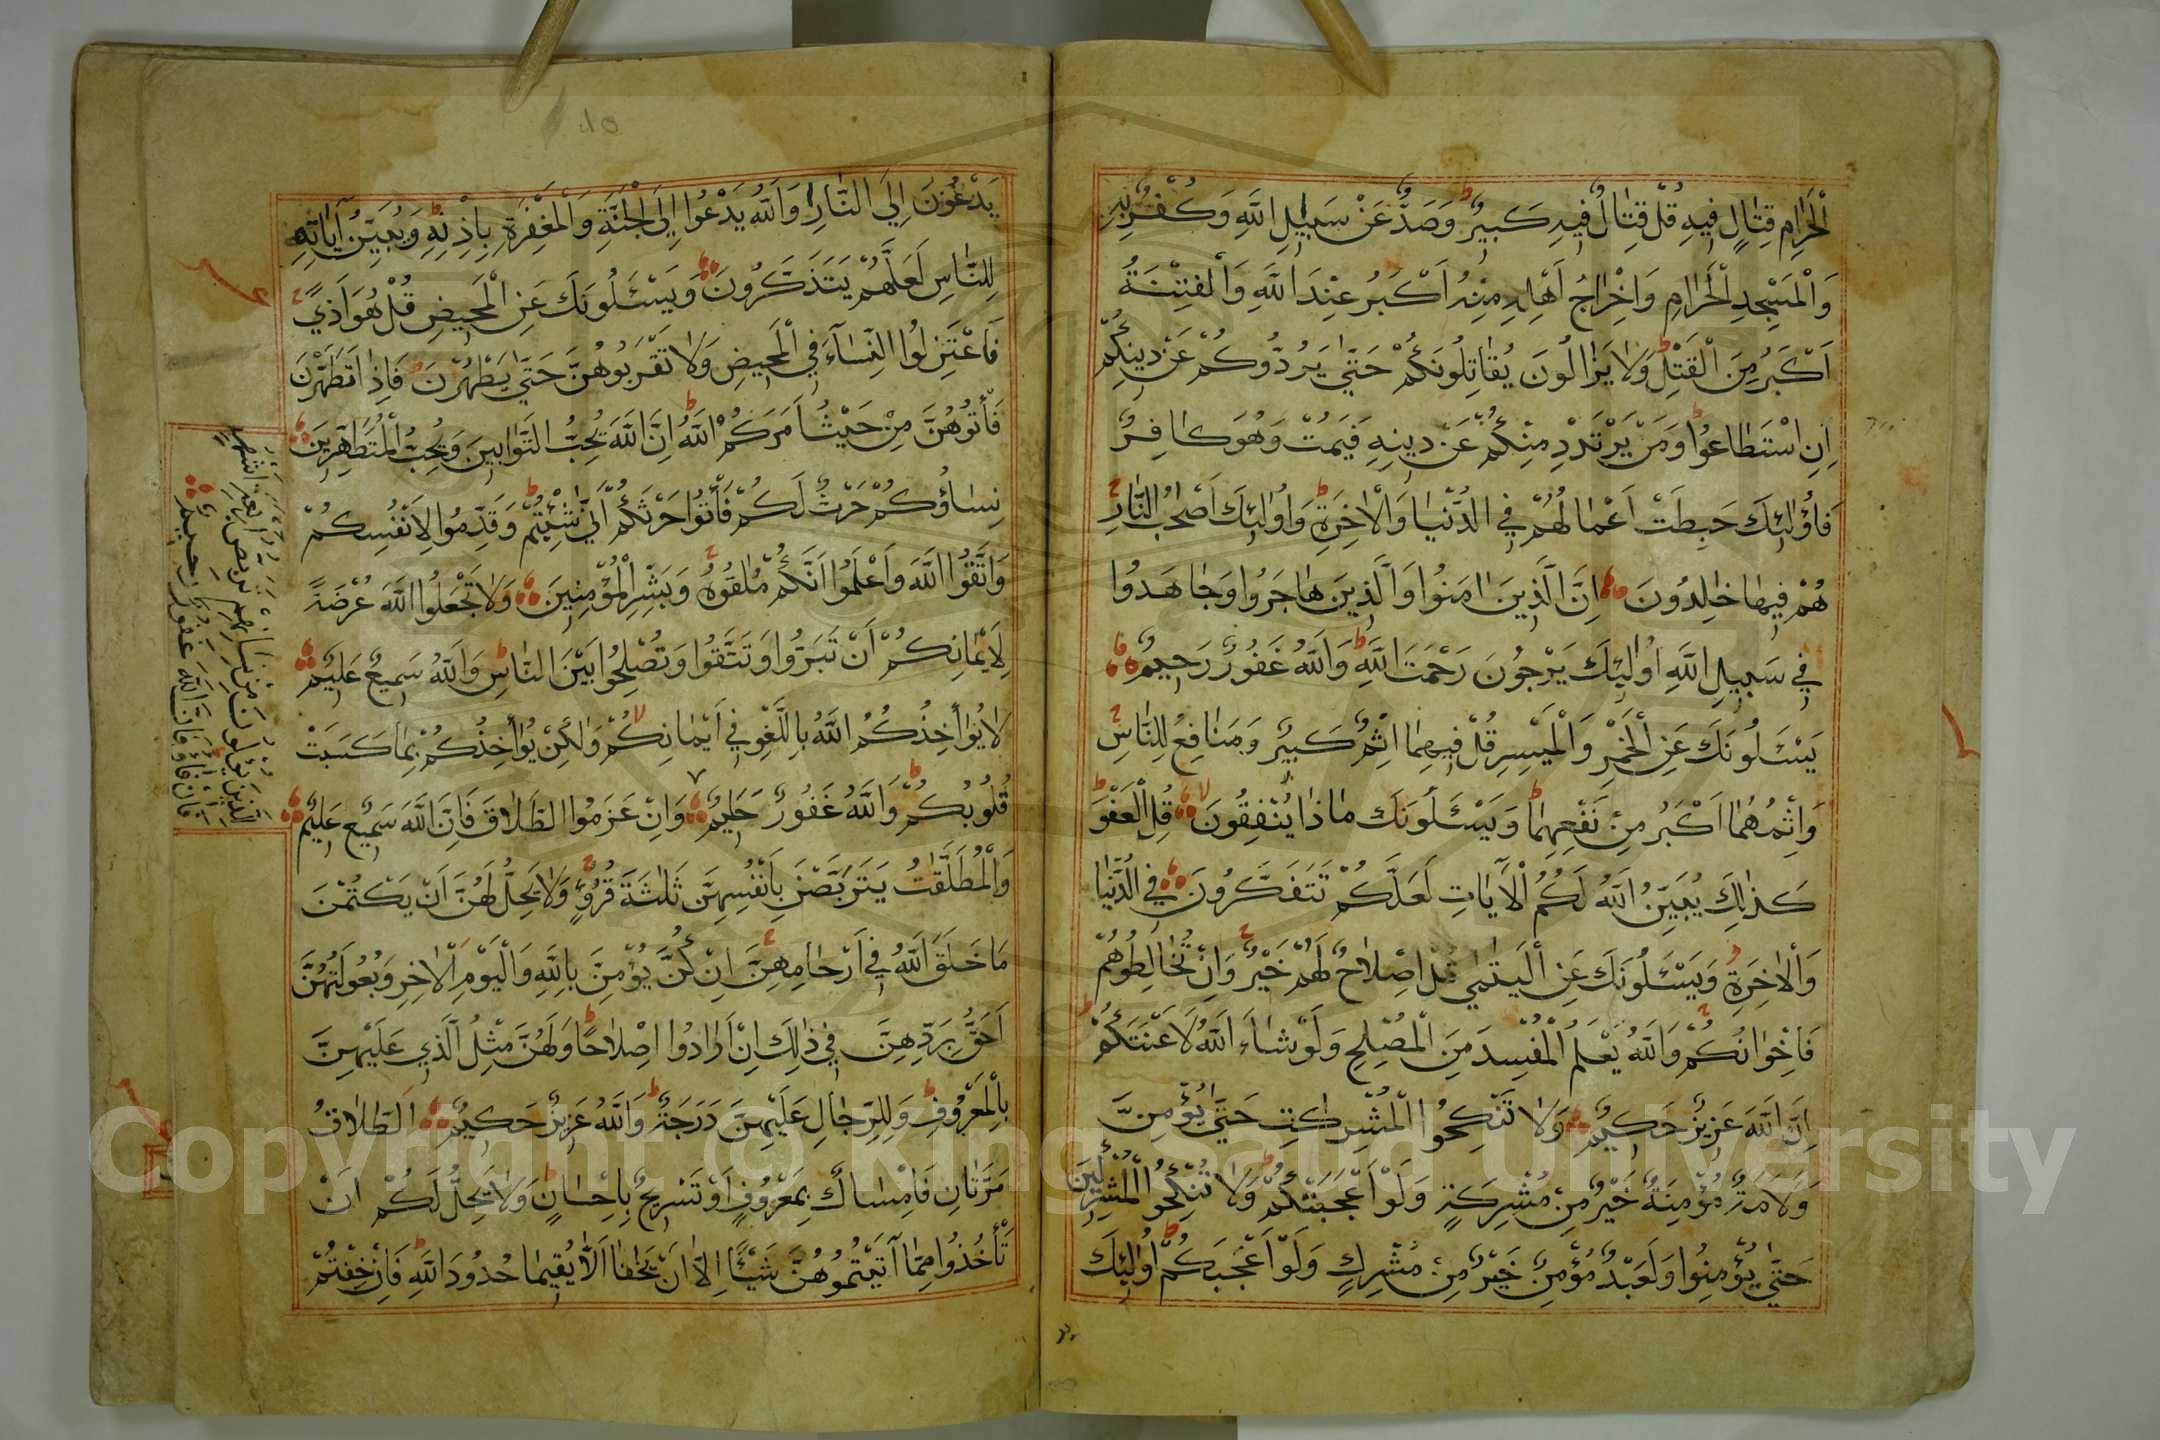 الْحَرَامِ قِتَالٍ فِيهِ قُلْ قِتَالٌ فِيهِ كَبِيرٌ وَصَدٌّ عَنْ سَبِيلِ اللَّهِ وَكُفْرٌ بِهِ
وَالْمَسْجِدِ الْحَرَامِ وَاِخْرَاجُ اَهْلِهِ مِنْهُ اَكْبَرُ عِنْدَ اللَّهِ وَالْفِتْنَةُ
اَكْبَرُ مِنَ الْقَتْلِ وَلَا يَزَالُونَ يُقَاتِلُونَكُمْ حَتَّى يَرُدُّوكُمْ عَنْ دِينِكُمْ
اِنِ اسْتَطَاعُوا وَمَنْ يَرْتَدِدْ مِنْكُمْ عَنْ دِينِهِ فَيَمُتْ وَهُوَ كَافِرٌ
فَاُولٰئِكَ حَبِطَتْ اَعْمَالُهُمْ فِي الدُّنْيَا وَالْاٰخِرَةِ وَاُولٰئِكَ اَصْحَابُ النَّارِ
هُمْ فِيهَا خَالِدُونَ اِنَّ الَّذِينَ اٰمَنُوا وَالَّذِينَ هَاجَرُوا وَجَاهَدُوا
فِي سَبِيلِ اللَّهِ اُولٰئِكَ يَرْجُونَ رَحْمَتَ اللَّهِ وَاللَّهُ غَفُورٌ رَحِيمٌ
يَسْئَلُونَكَ عَنِ الْخَمْرِ وَالْمَيْسِرِ قُلْ فِيهِمَا اِثْمٌ كَبِيرٌ وَمَنَافِعُ لِلنَّاسِ
وَاِثْمُهُمَا اَكْبَرُ مِنْ نَفْعِهِمَا وَيَسْئَلُونَكَ مَاذَا يُنْفِقُونَ قُلِ الْعَفْوَ
كَذٰلِكَ يُبَيِّنُ اللَّهُ لَكُمُ الْاٰيَاتِ لَعَلَّكُمْ تَتَفَكَّرُونَ فِي الدُّنْيَا
وَالْاٰخِرَةِ وَيَسْئَلُونَكَ عَنِ الْيَتٰمٰي قُلْ اِصْلَاحٌ لَهُمْ خَيْرٌ وَاِنْ تُخَالِطُوهُمْ
فَاِخْوَانُكُمْ وَاللَّهُ يَعْلَمُ الْمُفْسِدَ مِنَ الْمُصْلِحِ وَلَوْ شَاءَ اللَّهُ لَاَعْنَتَكُمْ
اِنَّ اللَّهَ عَزِيزٌ حَكِيمٌ وَلَا تَنْكِحُوا الْمُشْرِكٰتِ حَتَّى يُؤْمِنَّ
وَلَاَمَةٌ مُؤْمِنَةٌ خَيْرٌ مِنْ مُشْرِكَةٍ وَلَوْ اَعْجَبَتْكُمْ وَلَا تُنْكِحُوا الْمُشْرِكِينَ
حَتَّى يُؤْمِنُوا وَلَعَبْدٌ مُؤْمِنٌ خَيْرٌ مِنْ مُشْرِكٍ وَلَوْ اَعْجَبَكُمْ اُولٰئِكَ
يَدْعُونَ اِلَى النَّارِ وَاللَّهُ يَدْعُوا اِلَى الْجَنَّةِ وَالْمَغْفِرَةِ بِاِذْنِهِ وَيُبَيِّنُ اٰيَاتِهِ
لِلنَّاسِ لَعَلَّهُمْ يَتَذَكَّرُونَ وَيَسْئَلُونَكَ عَنِ الْمَحِيضِ قُلْ هُوَ اَذًي
فَاعْتَزِلُوا النِّسَاءَ فِي الْمَحِيضِ وَلَا تَقْرَبُوهُنَّ حَتَّى يَطْهُرْنَ فَاِذَا تَطَهَّرْنَ
فَأْتُوهُنَّ مِنْ حَيْثُ اَمَرَكُمُ اللَّهُ اِنَّ اللَّهَ يُحِبُّ التَّوَّابِينَ وَيُحِبُّ الْمُتَطَهِّرِينَ
نِسَاؤُكُمْ حَرْثٌ لَكُمْ فَأْتُوا حَرْثَكُمْ اَنَّى شِئْتُمْ وَقَدِّمُوا لِاَنْفُسِكُمْ
وَاتَّقُوا اللَّهَ وَاعْلَمُوا اَنَّكُمْ مُلٰقُوهُ وَبَشِّرِ الْمُؤْمِنِينَ وَلَا تَجْعَلُوا اللَّهَ عُرْضَةً
لِاَيْمَانِكُمْ اَنْ تَبَرُّوا وَتَتَّقُوا وَتُصْلِحُوا بَيْنَ النَّاسِ وَاللَّهُ سَمِيعٌ عَلِيمٌ
لَا يُؤَاخِذُكُمُ اللَّهُ بِاللَّغْوِ فِي اَيْمَانِكُمْ وَلٰكِنْ يُؤَاخِذُكُمْ بِمَا كَسَبَتْ
قُلُوبُكُمْ وَاللَّهُ غَفُورٌ حَلِيمٌ وَاِنْ عَزَمُوا الطَّلَاقَ فَاِنَّ اللَّهَ سَمِيعٌ عَلِيمٌ
وَالْمُطَلَّقَاتُ يَتَرَبَّصْنَ بِاَنْفُسِهِنَّ ثَلٰثَةَ قُرُوءٍ وَلَا يَحِلُّ لَهُنَّ اَنْ يَكْتُمْنَ
مَا خَلَقَ اللَّهُ فِي اَرْحَامِهِنَّ اِنْ كُنَّ يُؤْمِنَّ بِاللَّهِ وَالْيَوْمِ الْاٰخِرِ وَبُعُولَتُهُنَّ
اَحَقُّ بِرَدِّهِنَّ فِي ذٰلِكَ اِنْ اَرَادُوا اِصْلَاحًا وَلَهُنَّ مِثْلُ الَّذِي عَلَيْهِنَّ
بِالْمَعْرُوفِ وَلِلرِّجَالِ عَلَيْهِنَّ دَرَجَةٌ وَاللَّهُ عَزِيزٌ حَكِيمٌ اَلطَّلَاقُ
مَرَّتَانِ فَاِمْسَاكٌ بِمَعْرُوفٍ اَوْ تَسْرِيحٌ بِاِحْسَانٍ وَلَا يَحِلُّ لَكُمْ اَنْ
تَأْخُذُوا مِمَّا اٰتَيْتُمُوهُنَّ شَيْئًا اِلَّا اَنْ يَخَافَا اَلَّا يُقِيمَا حُدُودَ اللَّهِ فَاِنْ خِفْتُمْ
لِلَّذِينَ يُؤْلُونَ مِنْ نِسَائِهِمْ تَرَبُّصُ اَرْبَعَةِ اَشْهُرٍ
فَاِنْ فَاؤُ فَاِنَّ اللَّهَ غَفُورٌ رَحِيمٌ
Copyright © King Saud University